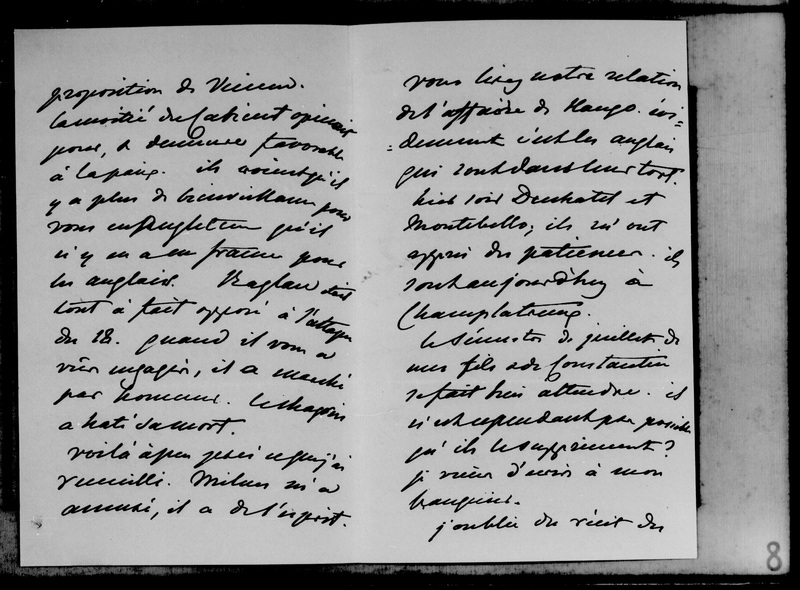 proposition de Vienne.
la moitié du Cabinet opinait
pour, & demeure favorable
à la paix. ils croient qu'il
y a plus de bienveillance pour
vous en Angleterre qu'il
n'y en a en france pour
les anglais. Raglan était
tout à fait opposé à l'attaque
du 18. quand il vous a
vus engagés, il a marché
par honneur. le chagrin
a hâté sa mort.
voilà à peu près ce que j'ai
recueilli. Milnes m'a
amusé, il a de l'esprit.
vous lirez notre relation
de l'affaire de Hango. évi=
=demment c'est les anglais
qui sont dans leur tort.
hier soir Duchatel et
Montebello, ils m'ont
appris des patiences. ils
sont aujourd'huy à
Champlatreux.
le Semestre de juillet de
mes fils & de Constantin
se fait bien attendre. il
n'est cependant pas possible
qu'ils le suppriment?
je viens d'écrire à mon
banquier.
j'oublie du récit du
8